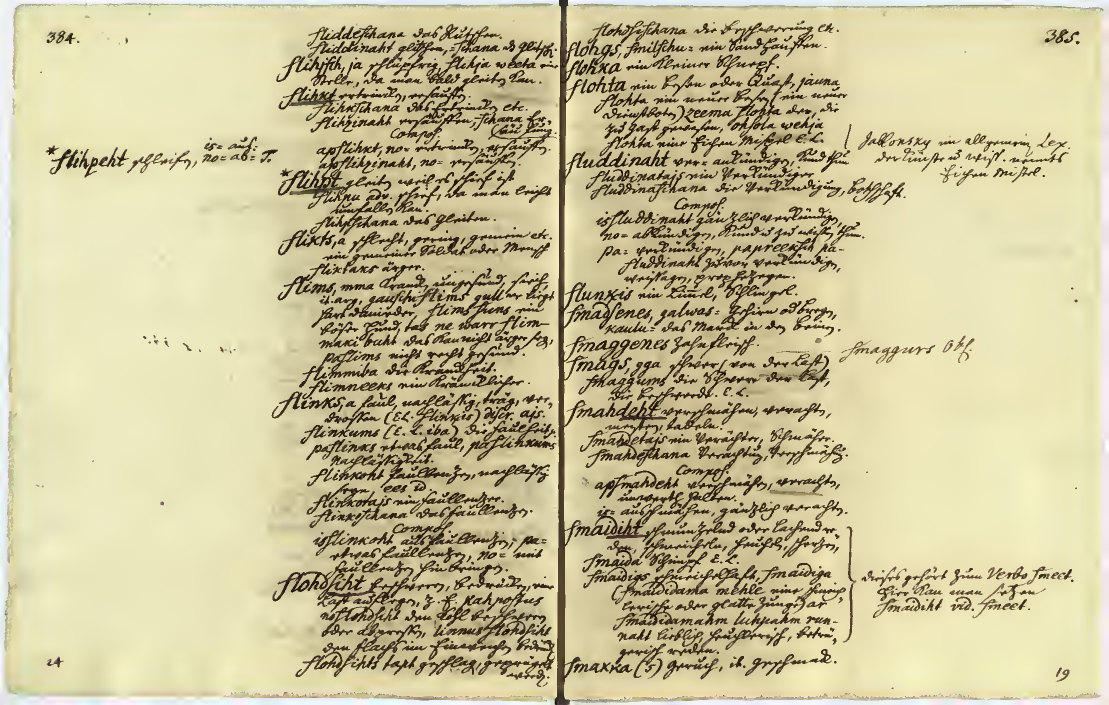 384.
fliddeschana das Rutschen.
fliddinaht glitschen, -schana das glitsch.
flihksch, ja schlüpfrig, flihkja weeta eine
Stelle, da man bald gleiten kan.
flihkt ertrincken, ersauffen.
flihkschana das Ertrincken etc.
flihzinaht ersäuffen, -schana Er-
säuffung.
Compos.
apflihkt, no- ertrincken, ersauffen.
apflihzinaht, no- ersäuffen.
*flihpeht schleifen, is- aus-
no- ab- T.
*flihpt gleiten weil es schief ist
flihpu adv. schief, da man leicht
umfallen kan.
flihpschana das gleiten.
flikts, a schlecht, gering, gemein etc.
ein gemeiner Soldat oder Mensch
fliktaks ärger.
flims, mma kranck, ungesund, siech,
it. arg, gauschi flims gull er liegt
hart danieder, flims suns ein
böser Hund, tas ne warr flim-
maki buht das kan nicht ärger sey,
paflims nicht recht gesund.
flimmiba die Kranckheit.
flimneeks ein Kräncklicher.
flinks, a faul, nachlässig, träg, ver-
drossen (EL. flinkis)
flinkums (E. L. iba) die faulheit,
paflinks etwas faul, paflinkums
Nachlässigkeit.
flinkoht faullentzen, nachlässig
seyn, ees id.
flinkotajs ein faullentzer.
flinkoschana das faullentzen.
Compos.
isflinkoht ausfaullentzen, pa-
etwas faullentzen, no- mit
faullentzen hinbringen.
flohdsiht beschweren, bedrücken, eine
Last auflegen, z. E. kahpostus
noflohdsiht den Kohl beschweren
oder abpressen, linnus flohdsiht
den flachs im Einweichen bedrücken
flohdsihts tapt geschlagen, geprügelt
werden.
24
385.
flohdsischana die Beschwerung etc.
flohgs, smilschu- ein Sandhauffen.
flohka ein kleiner Schnepf.
flohta ein besen oder Quast, jauna
flohta ein neuer besen, ein neuer
Dienstbote) zeema flohta der, die
zu Gast gewesen, ohsola wehja
flohta eine Eichen Mistel E. L.
Jablonsky im allgemein Lex.
der Künste u. Wiss. nennts
Eichen Mistel.
fluddinaht ver- ankündigen, kund thun
fluddinatajs ein Verkündiger
fluddinaschana die Verkündigung, Botschaft.
Compos.
isfluddinaht gäntzlich verkündigen,
no- abkündigen, kund u. zu wissen thun.
pa- verkündigen, papreeksch pa-
fluddinaht zuvor verkündigen,
weissagen, prophezeyen.
flunkis ein Lümel, Schlingel.
smadsenes, galwas- Gehirn
kaulu- das Marck in den beinen.
smaggenes Zahnfleisch. smaggurs Obf.
smags, gga schwer (von der Last)
smaggums die Schwere der Last,
die beschwerde. E. L.
smahdeht verschmähen, verachten,
tadeln
smahdetajs ein Verächter, Schmäher.
smahdeschana Verachtung, Verschmähung.
Compos.
apsmahdeht verschmähen, verachten,
unwerth halten.
is- ausschmähen, gäntzlich verachten.
smaidiht schmuntzelnd oder lachend re-
den, schmeicheln, heucheln, schertzen,
smaida Schimpf E. L.
smaidigs schmeichelhaft, smaidiga
(smaididama mehle eine schmeich-
lerische oder glatte Zunge) ar
smaididamahm luhpahm run-
naht lieblich, heuchlerisch, betrü-
gerisch reden.
dieses gehört zum Verbo smeet.
hier kan man setzen
smaidiht vid. smeet.
smakka (s) geruch, it. geschmack.
19